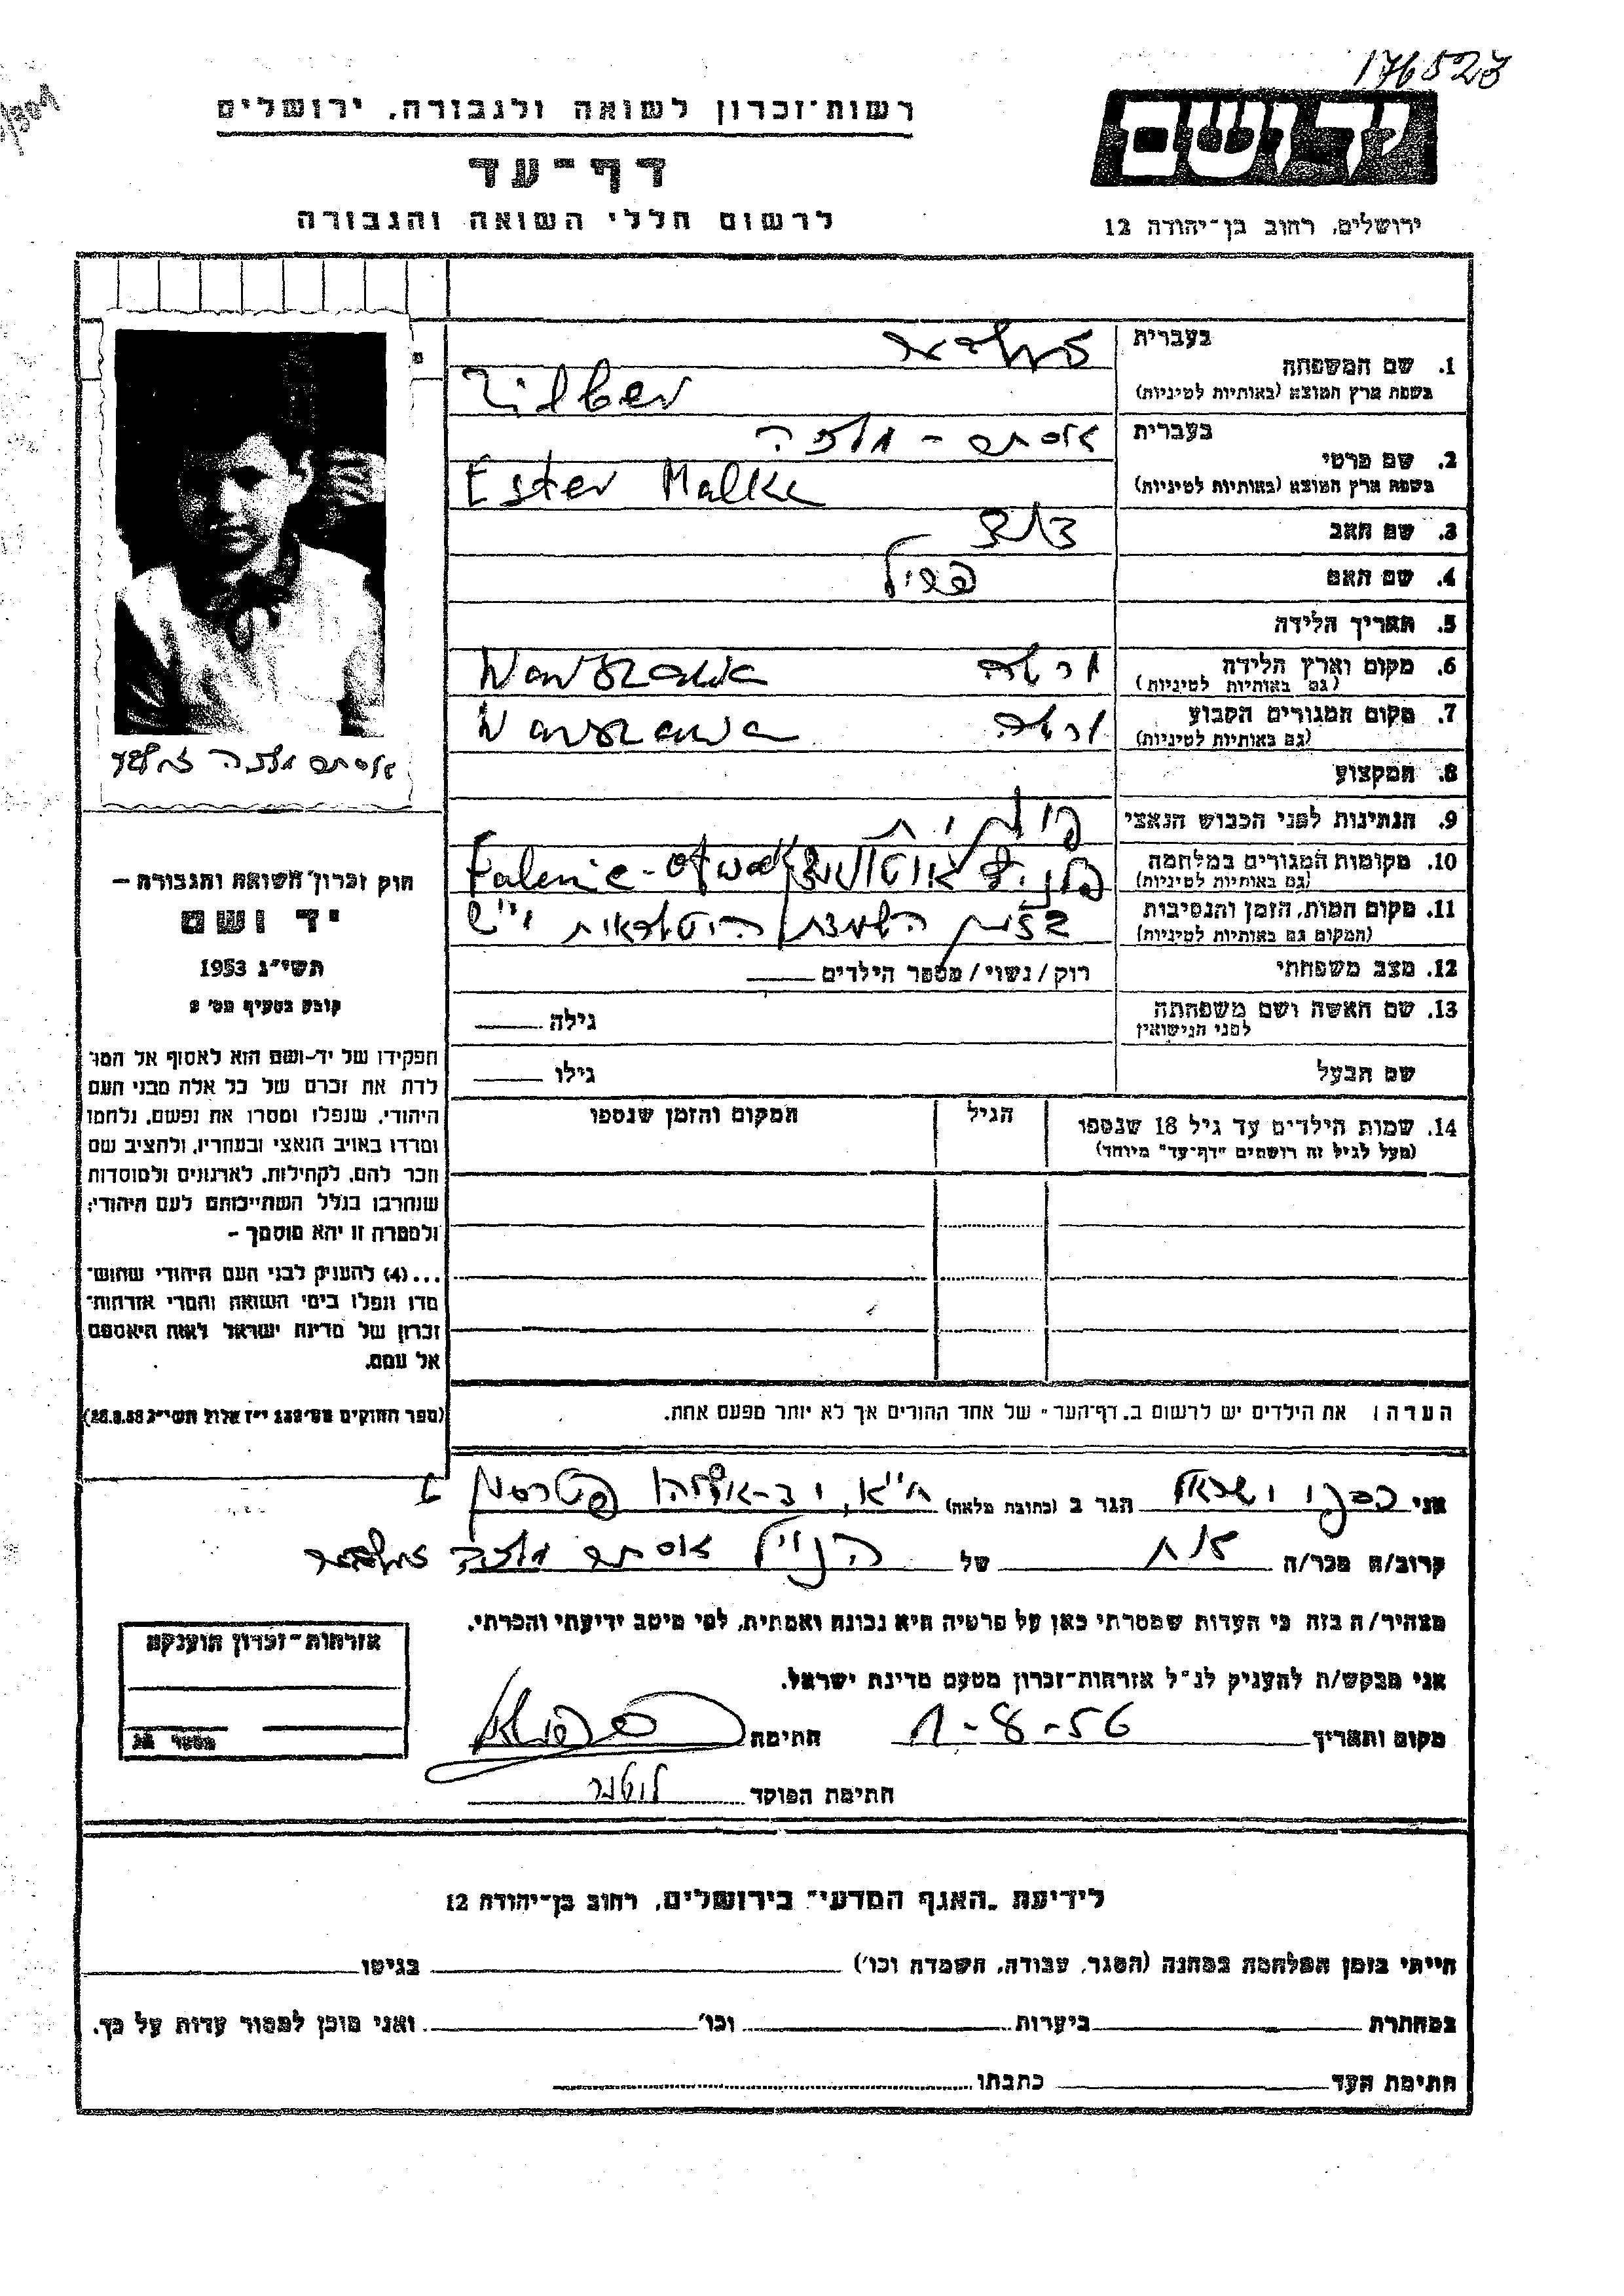 176523
רשות־זכרון לשואה ולגבורה, ירושלים
יד ושם
דף־עד
לרשום חללי השואה והגבורה
ירושלים, רחוב בן־יהודה 12
בעברית
1. שם המשפחה
בשפת ארץ המוצא (באותיות לטיניות)
זילבר
Zilber
בעברית
2. שם פרטי
בשפת ארץ המוצא (באותיות לטיניות)
אסתר - מלכה
Ester Malke
3. שם האב
4. שם האם
5. תאריך הלידה
6. מקום וארץ הלידה
(גם באותיות לטיניות)
ורשה Warszawa
7. מקום המגורים הקבוע
(גם באותיות לטיניות)
ורשה Warszawa
8. המקצוע
9. הנתינות לפני הכבוש הנאצי
פולנית
10. מקומות המגורים במלחמה
(גם באותיות לטיניות)
Falenic - Otwock
11. מקום המות, הזמן והנסיבות
(המקום גם באותיות לטיניות)
בזמן השמדת
12. מצב משפחתי
רוק / נשוי / מספר הילדים
13. שם האשה ושם משפחתה
לפני הנישואין
גילה
שם הבעל
גילו
14. שמות הילדים עד גיל 18 שנספו
(מעל לגיל זה רושמים "דף־עד" מיוחד)
הגיל
המקום והזמן שנספו
הערה: את הילדים יש לרשום ב„דף־העד" של אחד ההורים אך לא יותר מפעם אחת.
אסתר מלכה זילבר
חוק זכרון השואה והגבורה –
יד ושם
תשי״ג 1953
קובע בסעיף מס׳ 2
תפקידו של יד־ושם הוא לאסוף אל המו־
לדת את זכרם של כל אלה מבני העם
היהודי, שנפלו ומסרו את נפשם, נלחמו
ומרדו באויב הנאצי ובעוזריו, ולהציב שם
וזכר להם, לקהילות, לארגונים ולמוסדות
שנחרבו בגלל השתייכותם לעם היהודי;
ולמטרה זו יהא מוסמך –
...(4) להעניק לבני העם היהודי שהוש־
מדו ונפלו בימי השואה והמרי אזרחות־
זכרון של מדינת ישראל לאות היאספם
אל עמם.
(ספר החוקים מס׳ 132 י״ז אלול תשי״ג 28.8.53)
אני ישראל הגר ב (כתובת מלאה) ת״א,
קרוב/ה מכר/ה אח של הנ״ל אסתר מלכה זילבר
מצהיר/ה בזה כי העדות שמסרתי כאן על פרטיה היא נכונה ואמתית, לפי מיטב ידיעתי והכרתי.
אני מבקש/ת להעניק לנ״ל אזרחות־זכרון מטעם מדינת ישראל.
מקום ותאריך 1-8-56 חתימה
חתימת הפוקד
אזרחות־זכרון הוענקה
מספר
לידיעת „האגף המדעי" בירושלים, רחוב בן־יהודה 12
הייתי בזמן המלחמה במחנה (הסגר, עבודה, השמדה וכו׳) בגיטו
במחתרת ביערות וכו׳ ואני מוכן למסור עדות על כך.
חתימת העד כתבתו